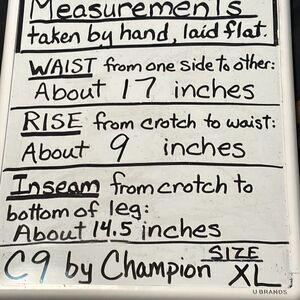 Measurements
taken by hand, laid flat.
WAIST from one side to other:
About 17 inches
RISE from crotch to waist:
About 9 inches
Inseam from crotch to
bottom of leg:
About 14.5 inches
C9 by Champion SIZE XL
U BRANDS